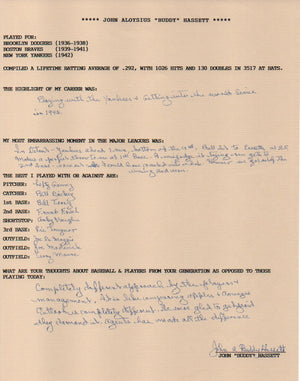 ***** JOHN ALOYSIUS "BUDDY" HASSETT *****
PLAYED FOR:
BROOKLYN DODGERS (1936-1938)
BOSTON BRAVES (1939-1941)
NEW YORK YANKEES (1942)
COMPILED A LIFETIME BATTING AVERAGE OF .292, WITH 1026 HITS AND 130 DOUBLES IN 3517 AT BATS.
THE HIGHLIGHT OF MY CAREER WAS:
Playing with the Yankees & getting into the World Series
in 1942.
MY MOST EMBARRASSING MOMENT IN THE MAJOR LEAGUES WAS:
In Detroit - Yankees ahead 1 run, bottom of the
makes a perfect throw to me at 1st Base.
winning run.
THE BEST I PLAYED WITH OR AGAINST ARE:
PITCHER: Lefty Gomez
CATCHER: Bill Dickey
1st BASE: Bill Terry
2nd BASE:
SHORTSTOP:
3rd BASE: Pie Traynor
OUTFIELD: Joe Di Maggio
OUTFIELD: Joe Medwick
OUTFIELD: Terry Moore
WHAT ARE YOUR THOUGHTS ABOUT BASEBALL & PLAYERS FROM YOUR GENERATION AS OPPOSED TO THOSE
PLAYING TODAY:
Completely different approach by the players &
management. It is like comparing apples & oranges
is completely different. We were glad to get what
they demand it. Agents has made all the difference
John A Buddy Hassett
JOHN "BUDDY" HASSETT